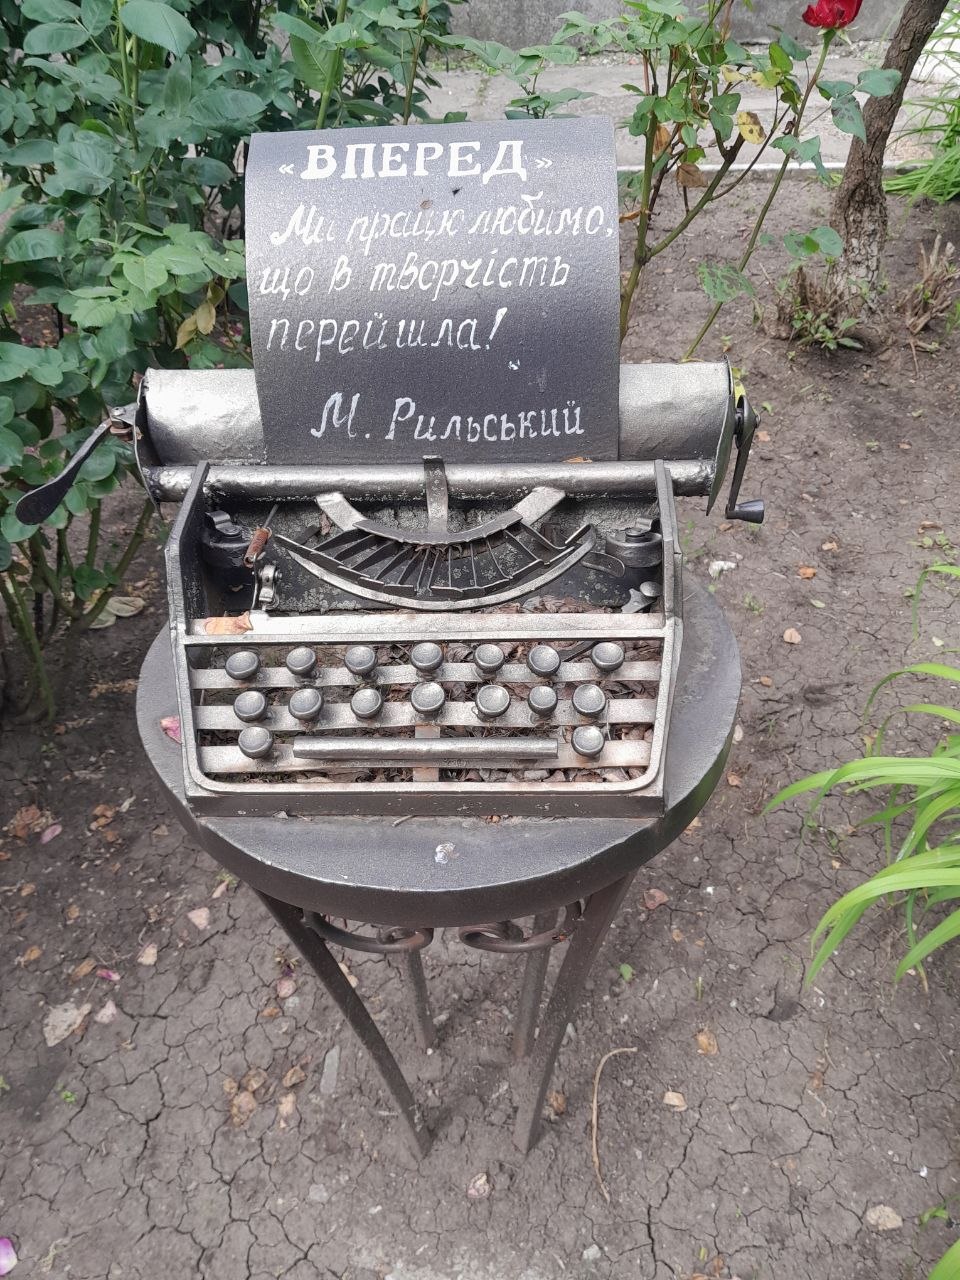 «ВПЕРЕД»
Ми працю любимо,
що в творчість
перейшла!
М. Рильський